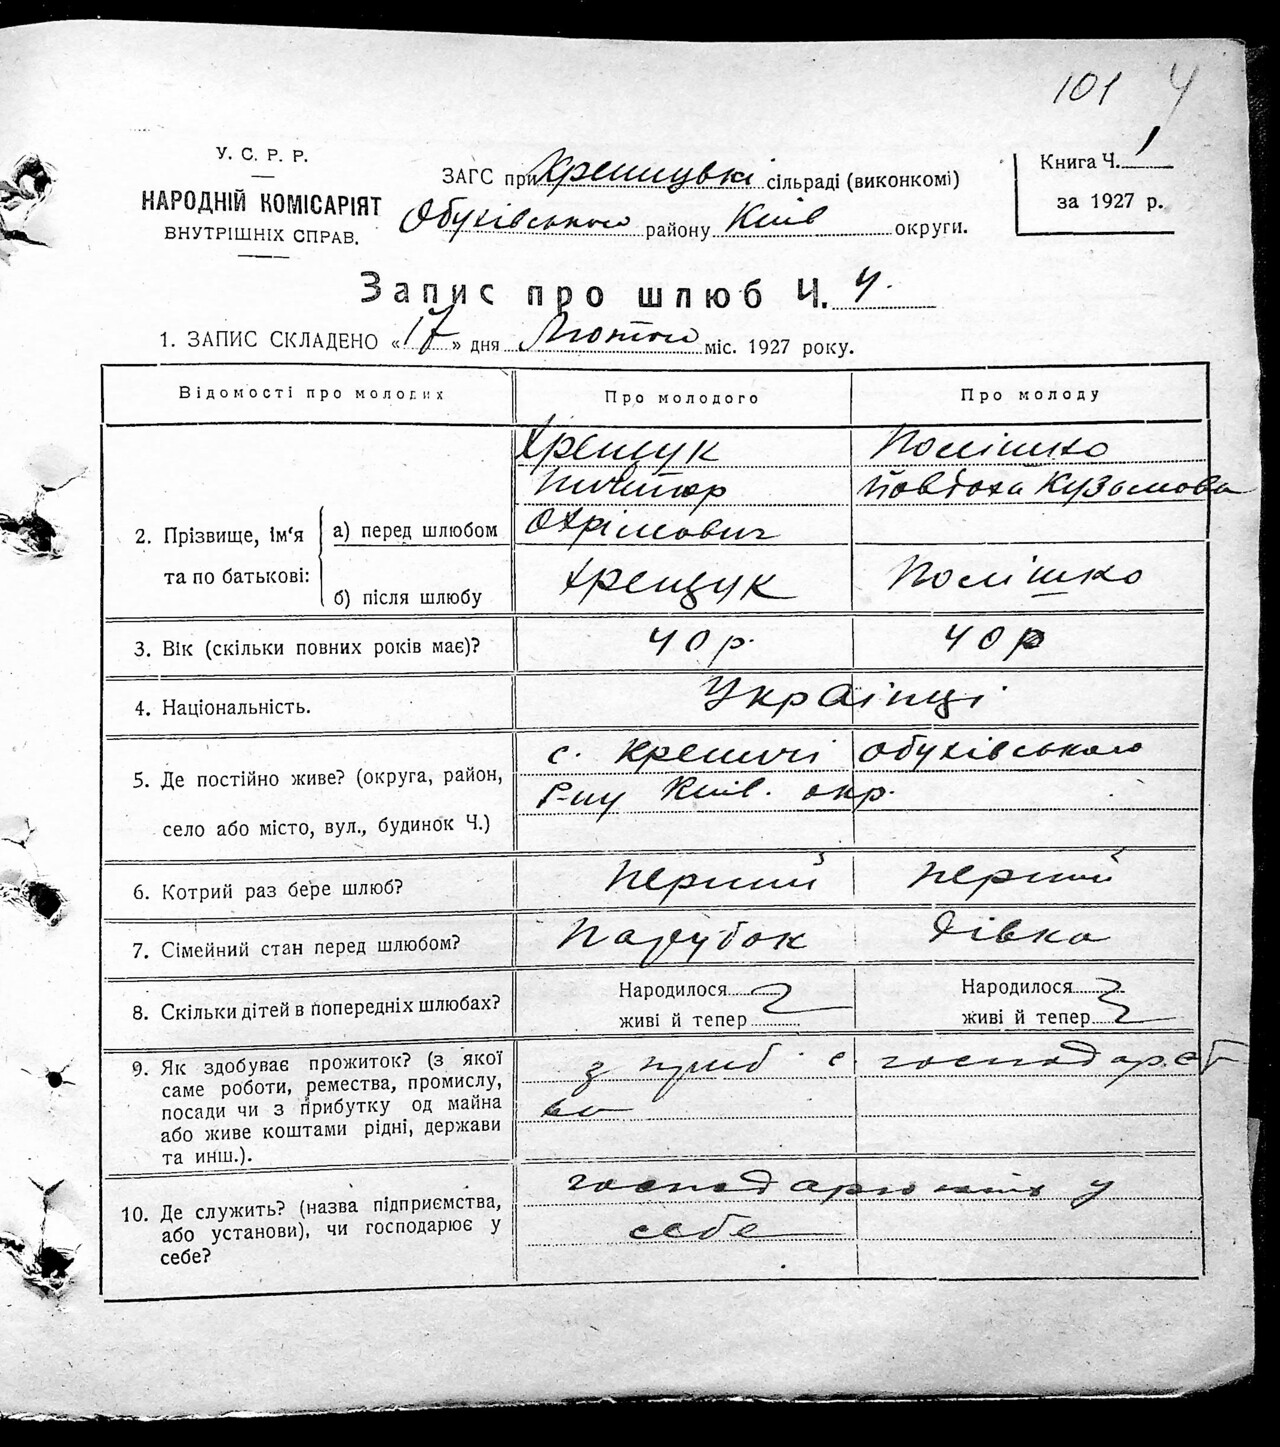 101 4
У. С. Р. Р.
НАРОДНІЙ КОМІСАРІЯТ
ВНУТРІШНІХ СПРАВ.
ЗАГС при сільраді (виконкомі)
Обухівського району Київ округи.
Книга Ч. 1
за 1927 р.
Запис про шлюб Ч. 4.
1. ЗАПИС СКЛАДЕНО «17» дня Лютого міс. 1927 року.
Відомості про молодих Про молодого Про молоду
2. Прізвище, ім'я та по батькові:
а) перед шлюбом
Хрещук
Охрімович
Полішко
Кузьмова
б) після шлюбу
Хрещук Полішко
3. Вік (скільки повних років має)? 40 р. 40 р
4. Національність. Українці
5. Де постійно живе? (округа, район,
село або місто, вул., будинок Ч.)
с. Креничі Обухівського
р-ну Київ. окр.
6. Котрий раз бере шлюб? перший перший
7. Сімейний стан перед шлюбом? Парубок Дівка
8. Скільки дітей в попередніх шлюбах?
Народилося
живі й тепер
Народилося
живі й тепер
9. Як здобуває прожиток? (з якої
саме роботи, ремества, промислу,
посади чи з прибутку од майна
або живе коштами рідні, держави
та инш.).
з приб с. господарст
ва
10. Де служить? (назва підприємства,
або установи), чи господарює у
себе?
господарюють у
себе